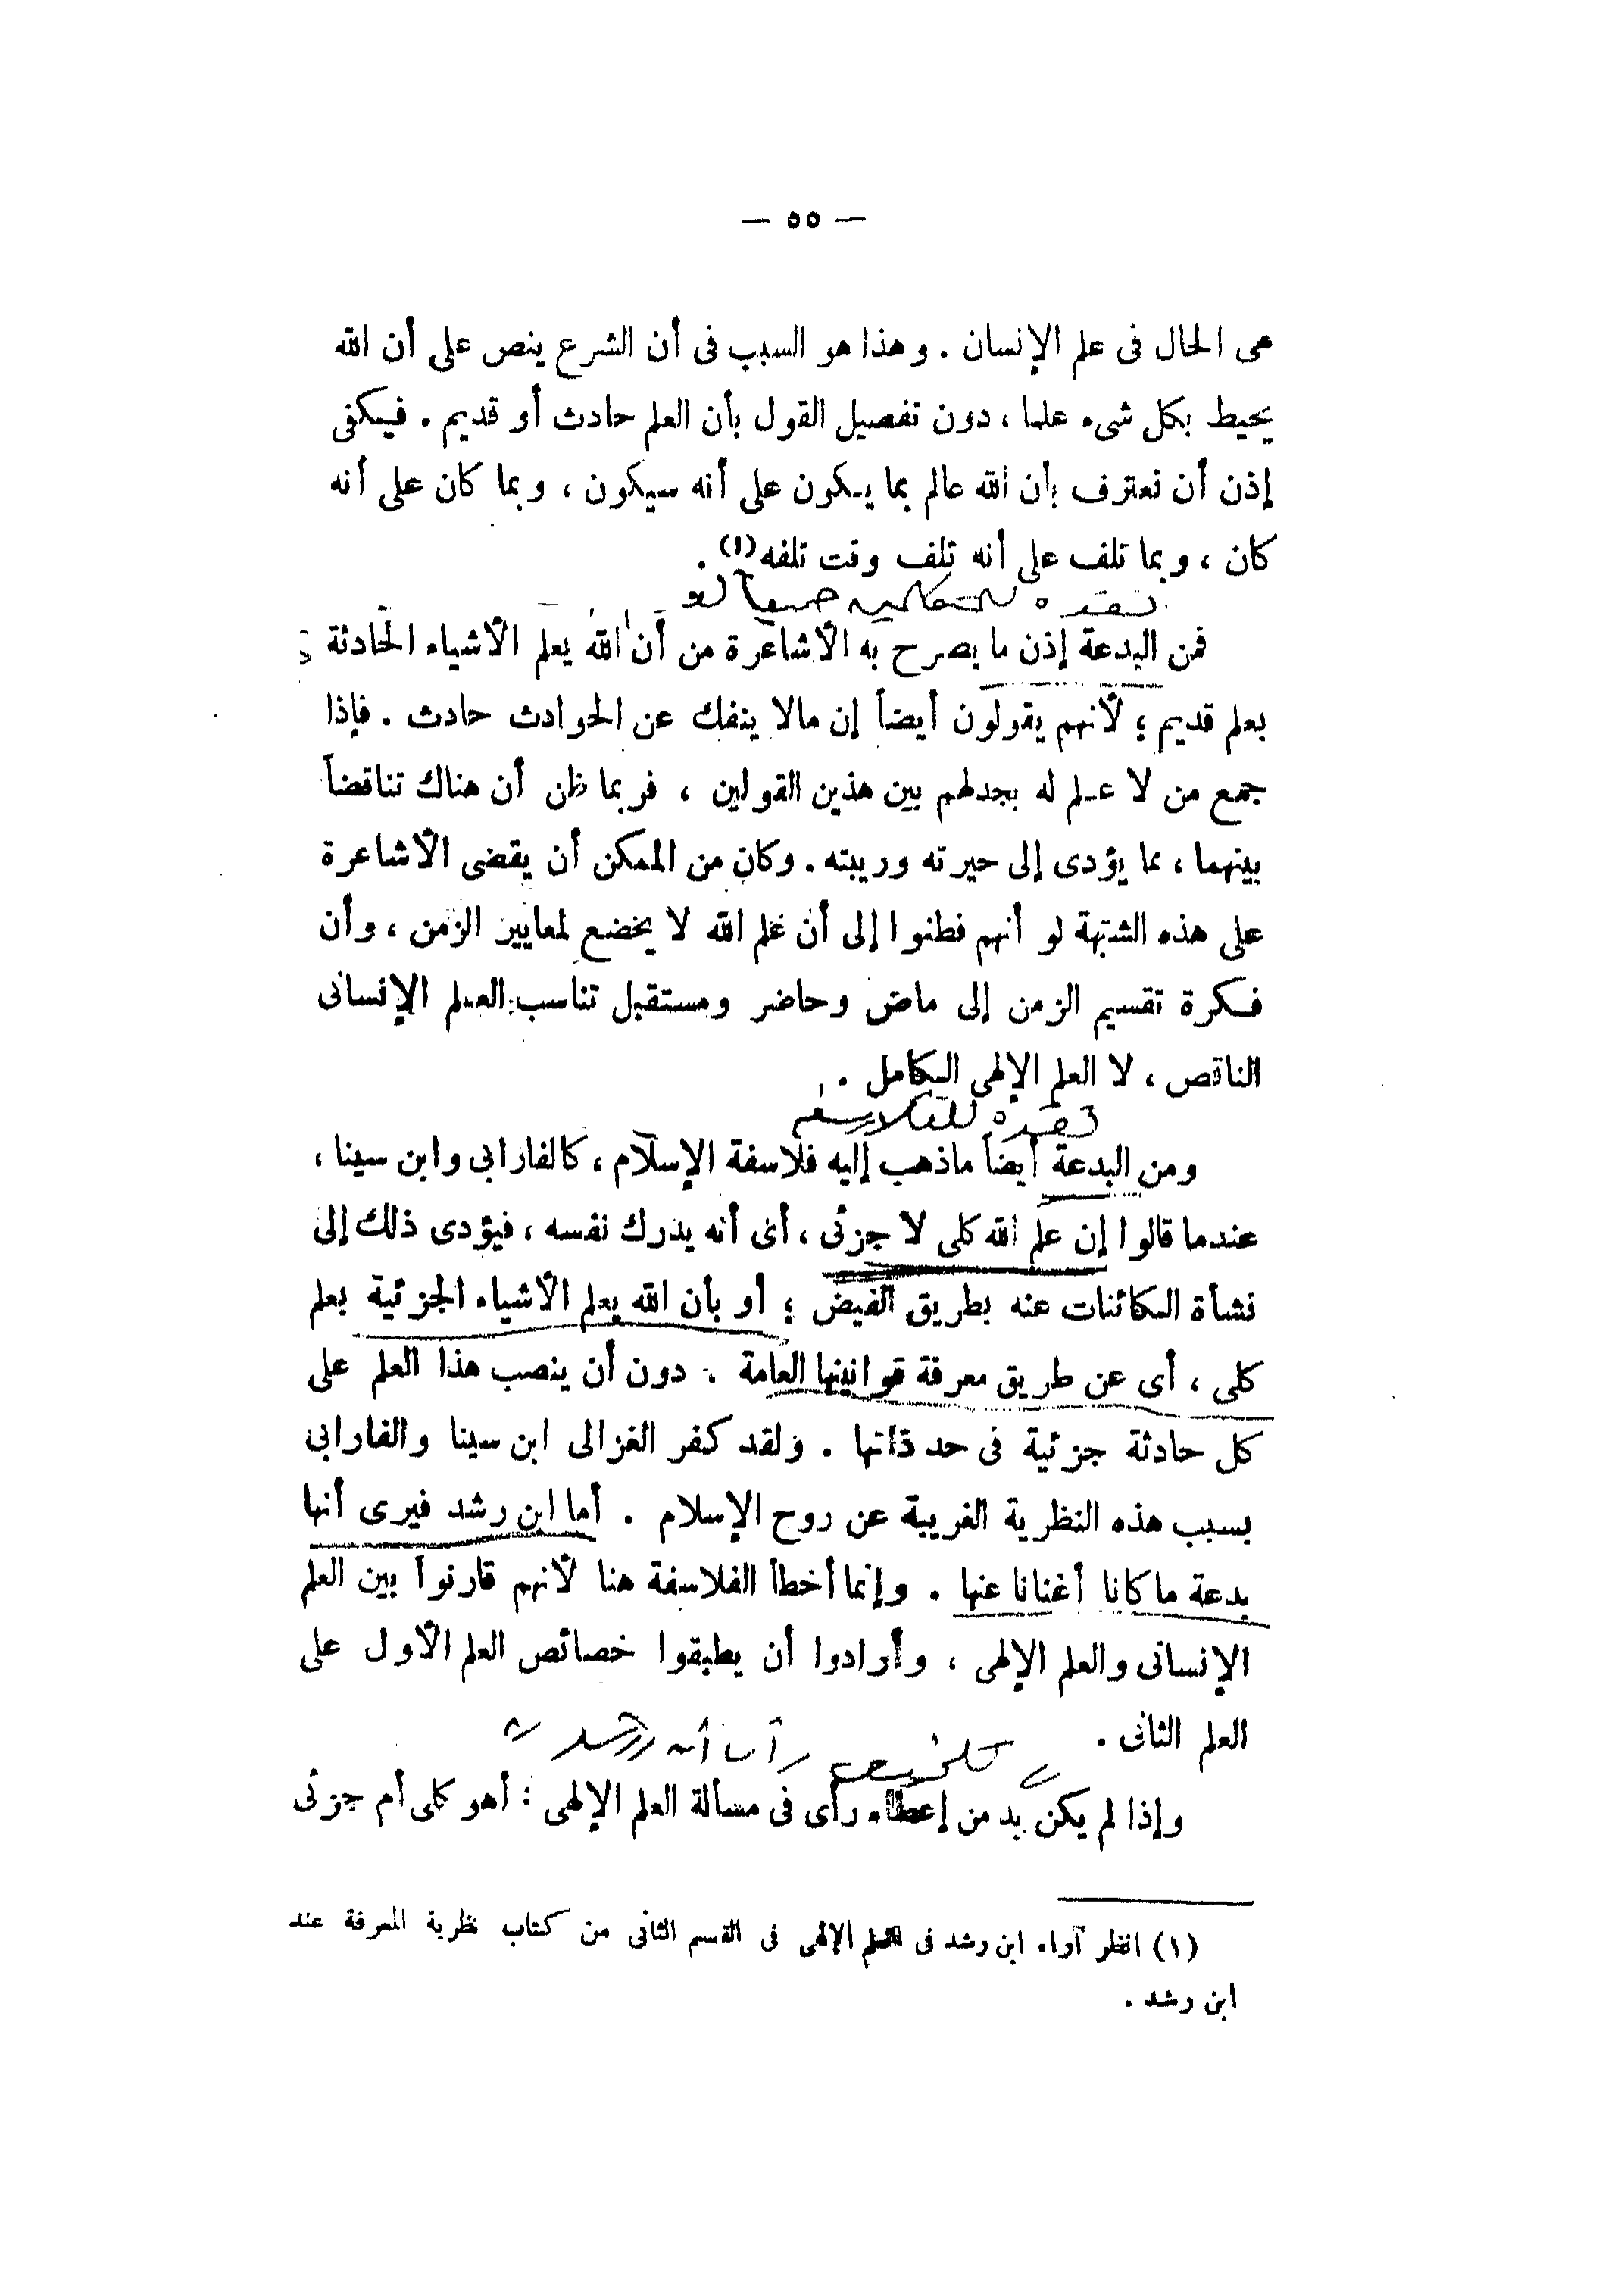 — ٥٥ —
هى الحال فى علم الإنسان . وهذا هو السبب فى أن الشرع ينص على أن الله
يحيط بكل شىء علما ، دون تفصيل القول بأن العلم حادث أو قديم . فيكفى
إذن أن نعترف بأن الله عالم بما يكون على أنه سيكون ، وبما كان على أنه
كان ، وبما تلف على أنه تلف وقت تلفه (١) .
نقده للمتكلمين
فمن البدعة إذن ما يصرح به الأشاعرة من أن الله يعلم الأشياء الحادثة
بعلم قديم ؛ لأنهم يقولون أيضاً إن مالا ينفك عن الحوادث حادث . فإذا
جمع من لا علم له بجدلهم بين هذين القولين ، فربما ظن أن هناك تناقضاً
بينهما ، مما يؤدى إلى حيرته وريبته . وكان من الممكن أن يقضى الأشاعرة
على هذه الشبهة لو أنهم فطنوا إلى أن علم الله لا يخضع لمعايير الزمن ، وأن
فكرة تقسيم الزمن إلى ماض وحاضر ومستقبل تناسب العلم الإنسانى
الناقص ، لا العلم الإلهى الكامل .
نقده للفلاسفه
ومن البدعة أيضاً ماذهب إليه فلاسفة الإسلام ، كالفارابى وابن سينا ،
عندما قالوا إن علم الله كلى لا جزئى ، أى أنه يدرك نفسه ، فيؤدى ذلك إلى
نشأة الكائنات عنه بطريق الفيض ؛ أو بأن الله يعلم الأشياء الجزئية بعلم
كلى ، أى عن طريق معرفة قوانينها العامة . دون أن ينصب هذا العلم على
كل حادثة جزئية فى حد ذاتها . ولقد كفر الغزالى ابن سينا والفارابى
بسبب هذه النظرية الغريبة عن روح الإسلام . أما ابن رشد فيرى أنها
بدعة ما كانا أغنانا عنها . وإنما أخطأ الفلاسفة هنا لأنهم قارنوا بين العلم
الإنسانى والعلم الإلهى ، وأرادوا أن يطبقوا خصائص العلم الأول على
العلم الثانى .
تلخيص رأى ابن رشد
وإذا لم يكن بد من إعطاء رأى فى مسألة العلم الإلهى : أهو كلى أم جزئى
(١) انظر آراء ابن رشد فى العلم الإلهى فى القسم الثانى من كتاب نظرية المعرفة عند
ابن رشد .